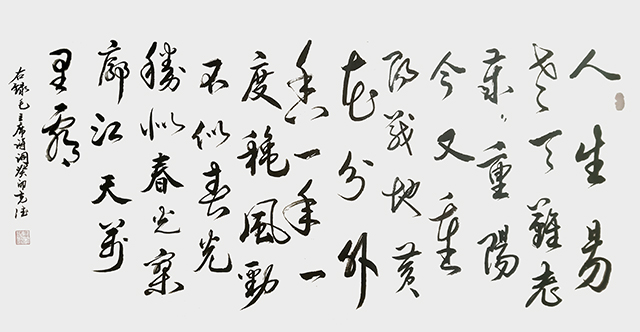 人生易
老天難老
歲々重陽
今又重
陽戰地黃
花分外
香一年一
度穐風勁
不似春光
勝似春光寥
廓江天萬
里霜
右錄毛主席詩詞癸卯